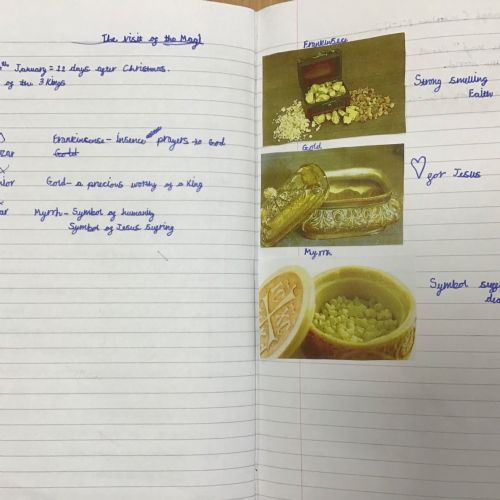 The visit of the Magi
th January = 12 days after Christmas.
of the 3 Kings
Frankinsense - Insence prayers to God
Gold
Gold - a precious worthy of a King
Myrrh - Symbol of humanity
Symbol of Jesus
Frankinsece
Strong smelling
Faith
Gold
for Jesus
Myrrh
Symbol